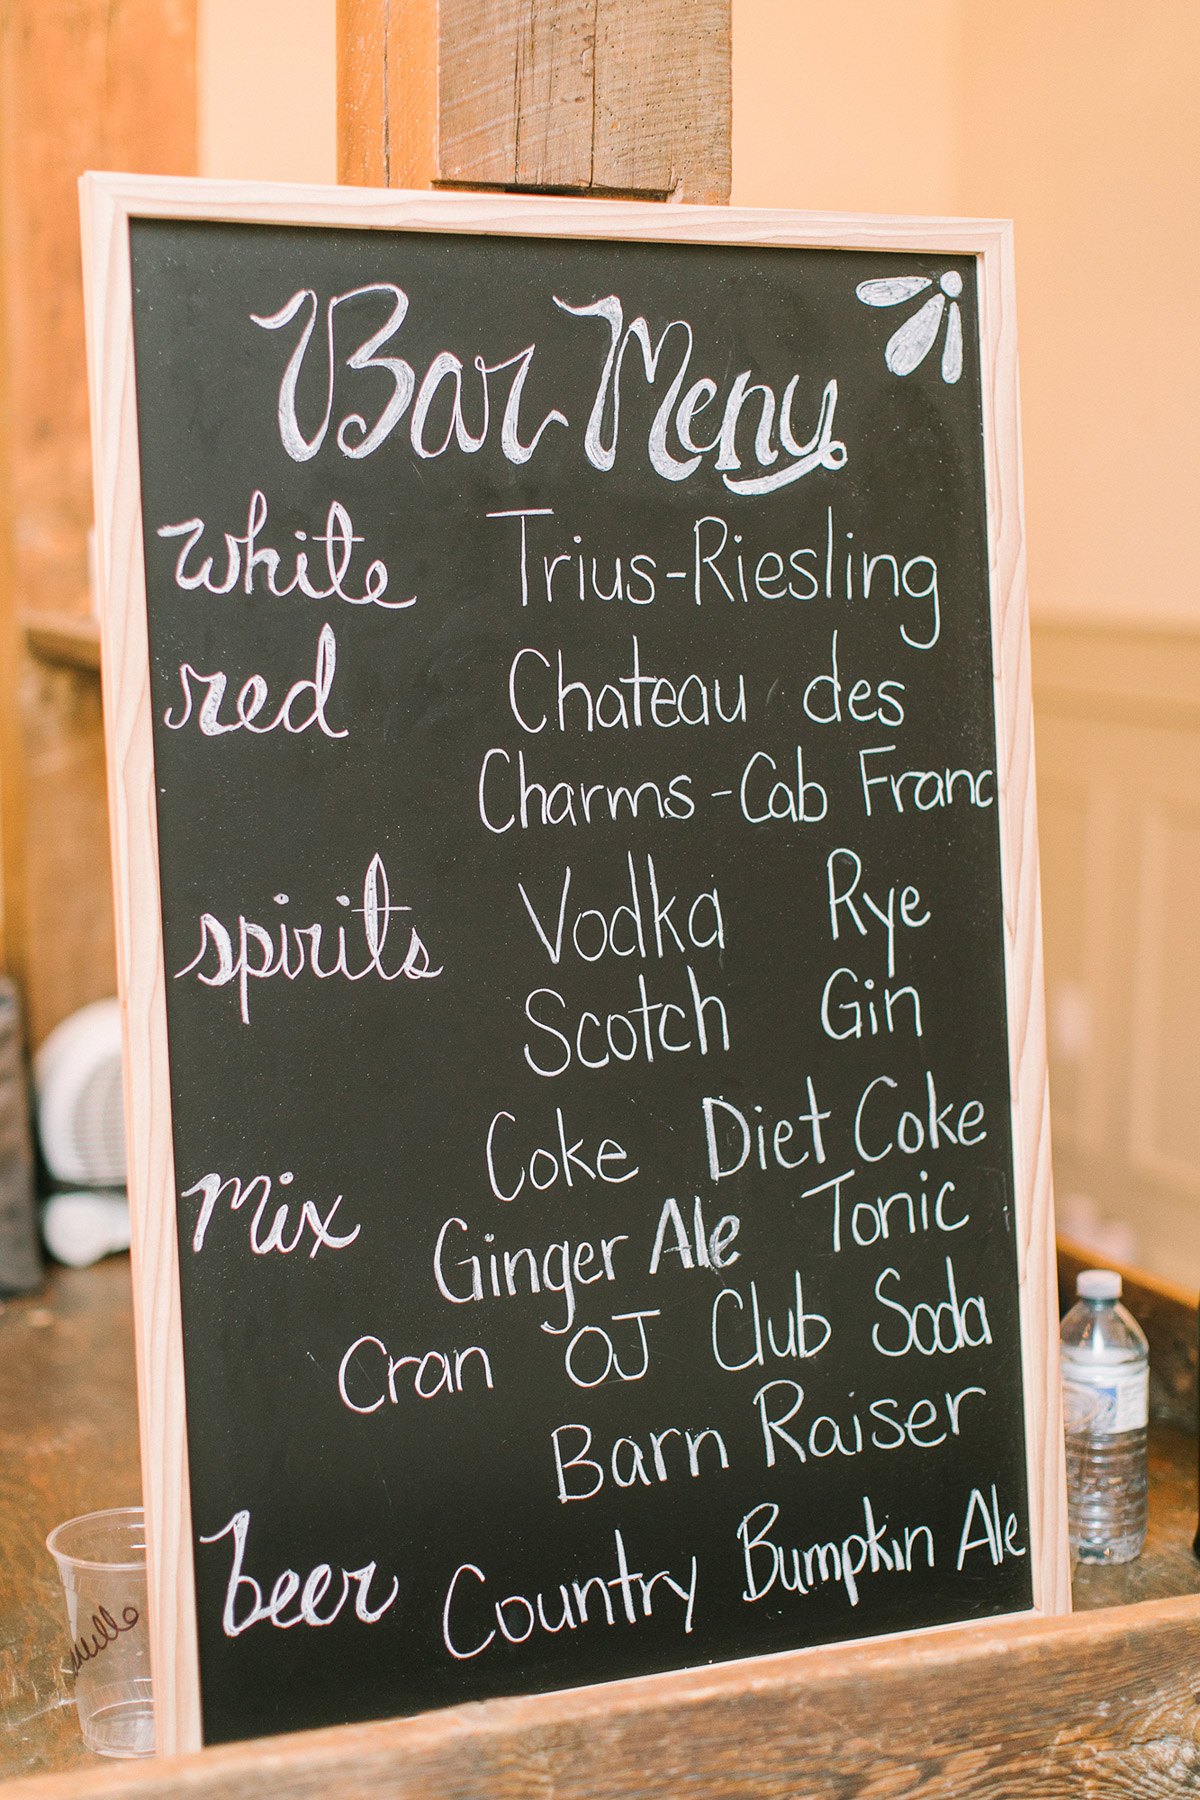 Bar Menu
white Trius-Riesling
red Chateau des
Charms-Cab Franc
spirits Vodka Rye
Scotch Gin
Coke Diet Coke
mix Ginger Ale Tonic
Cran OJ Club Soda
Barn Raiser
beer Country Bumpkin Ale